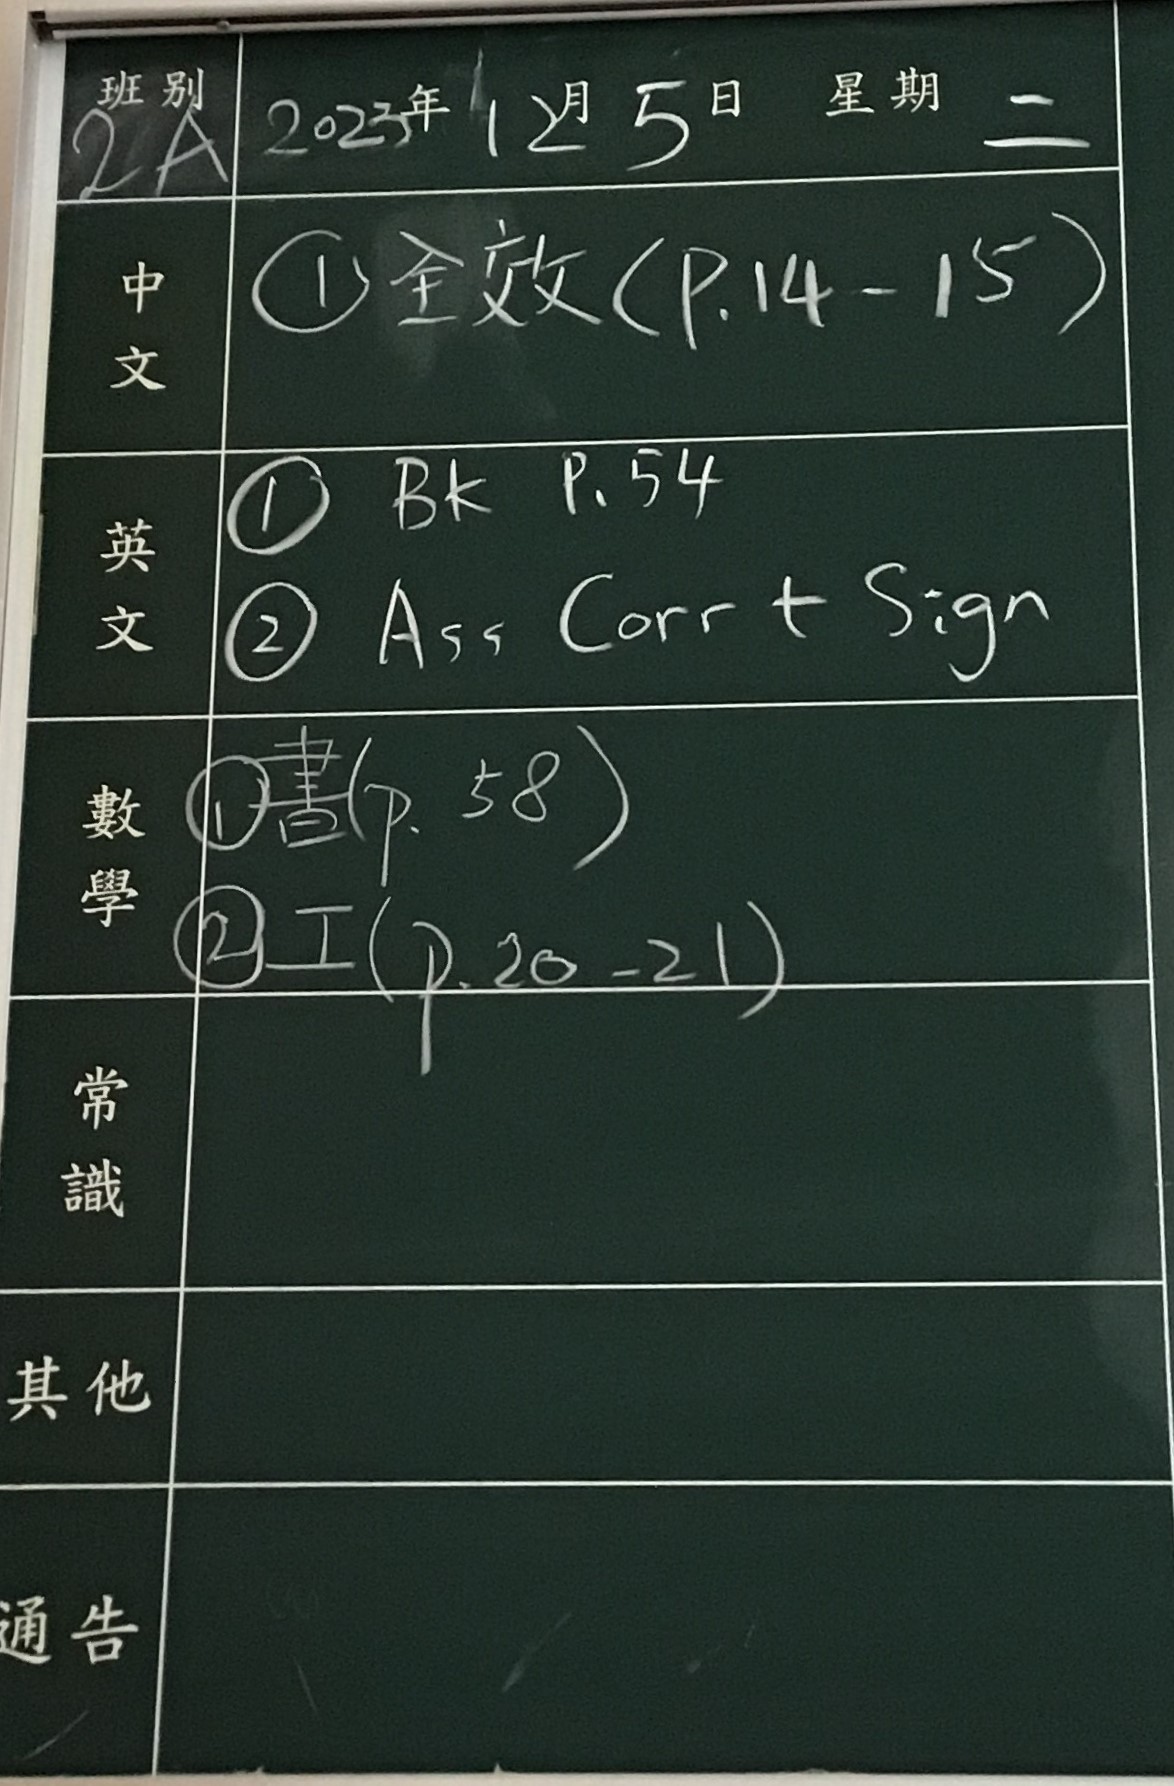 班別 2A 2023年 12月 5日 星期 二
中文 ① 全效 (P.14-15)
英文 ① Bk P.54
② Ass Corr + Sign
數學 ① 書 (p. 58)
② 工 (p.20-21)
常識
其他
通告